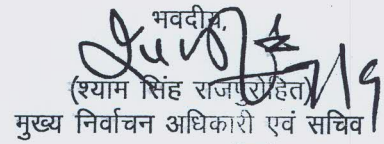 भवदीय,
(श्याम सिंह राजपुरोहित)
मुख्य निर्वाचन अधिकारी एवं सचिव